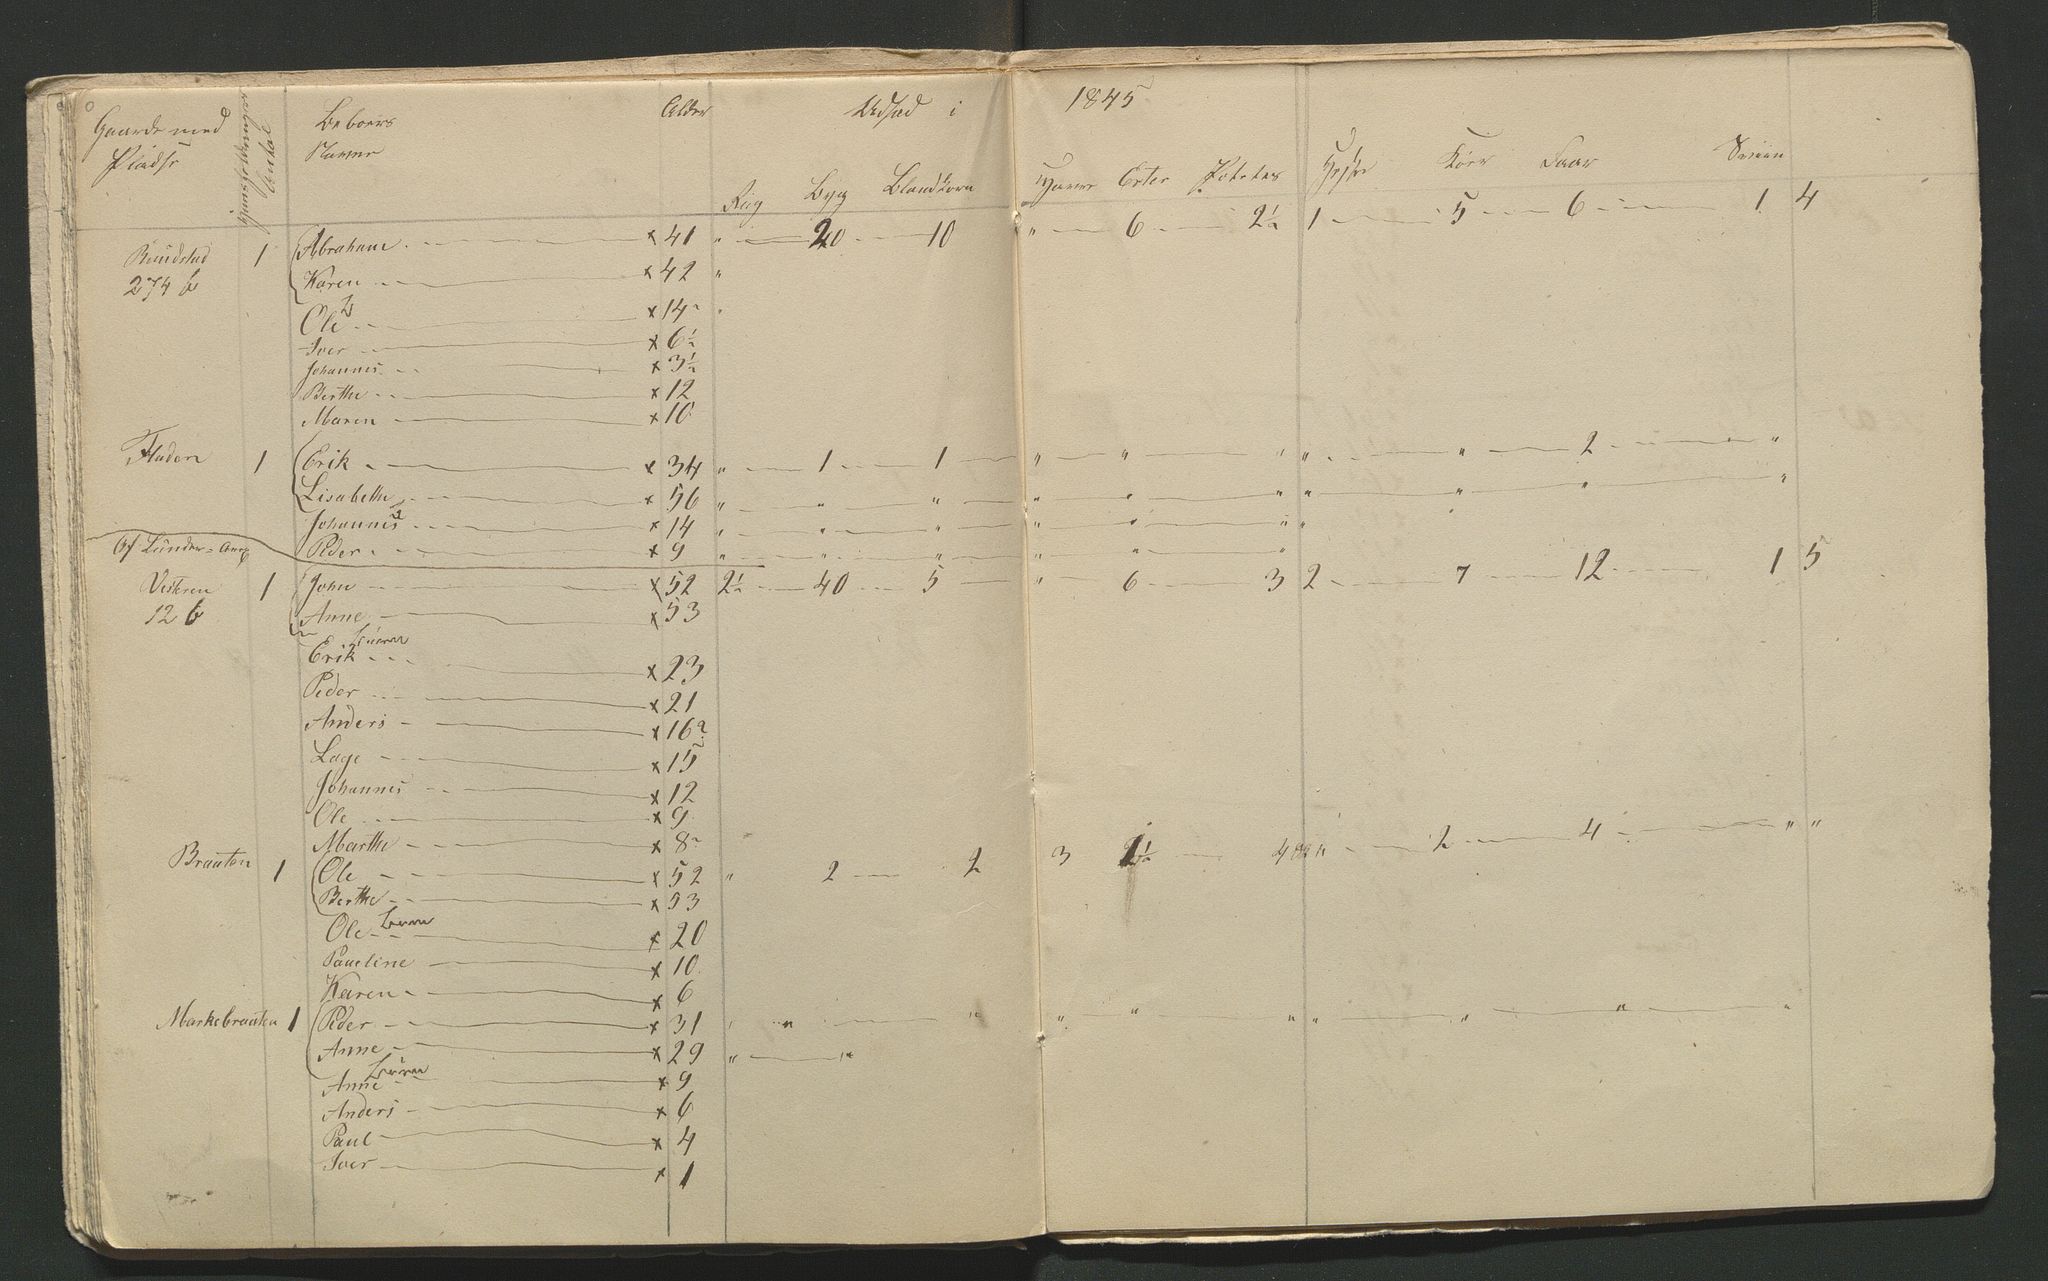 Gaarde med Pladse Huusholdninger Antal Beboers Navne Alder Udsæd i 1845
Rug Byg Blandkorn Havre Erter Potetes Heste Köer Faar Sviin
Rundstad 1 Abraham × 41 " 20 10 " 6 2½ 1 5 6 1 4
274 b Karen × 42 "
Ole × 14
Iver × 6½
Johannes × 3½
Berthe × 12
Maren × 10
Fladen 1 Erik × 34 " 1 1 " " " " " 2 "
Lisabeth × 56 " " " " " " " " " "
Johannes × 14 " " " " " " "
Peder × 9 " " " " " "
Af Lunder-Anx
Vestren 1 John × 52 2½ 40 5 " 6 3 2 7 12 1 5
12 b Anne × 53
Erik × 23
Peder × 21
Anders × 16
Lage × 15
Johannes × 12
Ole × 9
Marthe × 8
Braaten 1 Ole × 52 " 2 2 3 1½ 4 " 2 4 " "
Berthe × 53
Ole × 20
Paueline × 10
Karen × 6
Markebraaten 1 Peder × 31 " " " " " " " " " "
Anne × 29 " "
Anne × 9
Anders × 6
Paul × 4
Iver × 1